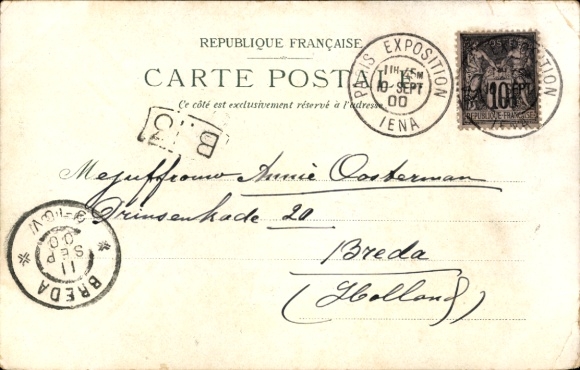 REPUBLIQUE FRANÇAISE
CARTE POSTALE
Ce côté est exclusivement réservé à l'adresse
PARIS EXPOSITION
10 SEPT
00
IENA
10
REPUBLIQUE FRANÇAISE
B
3
Mejuffrouw Annie Oosterman
Prinsenkade 20
Breda
(Holland)
BREDA
11
SEP
00